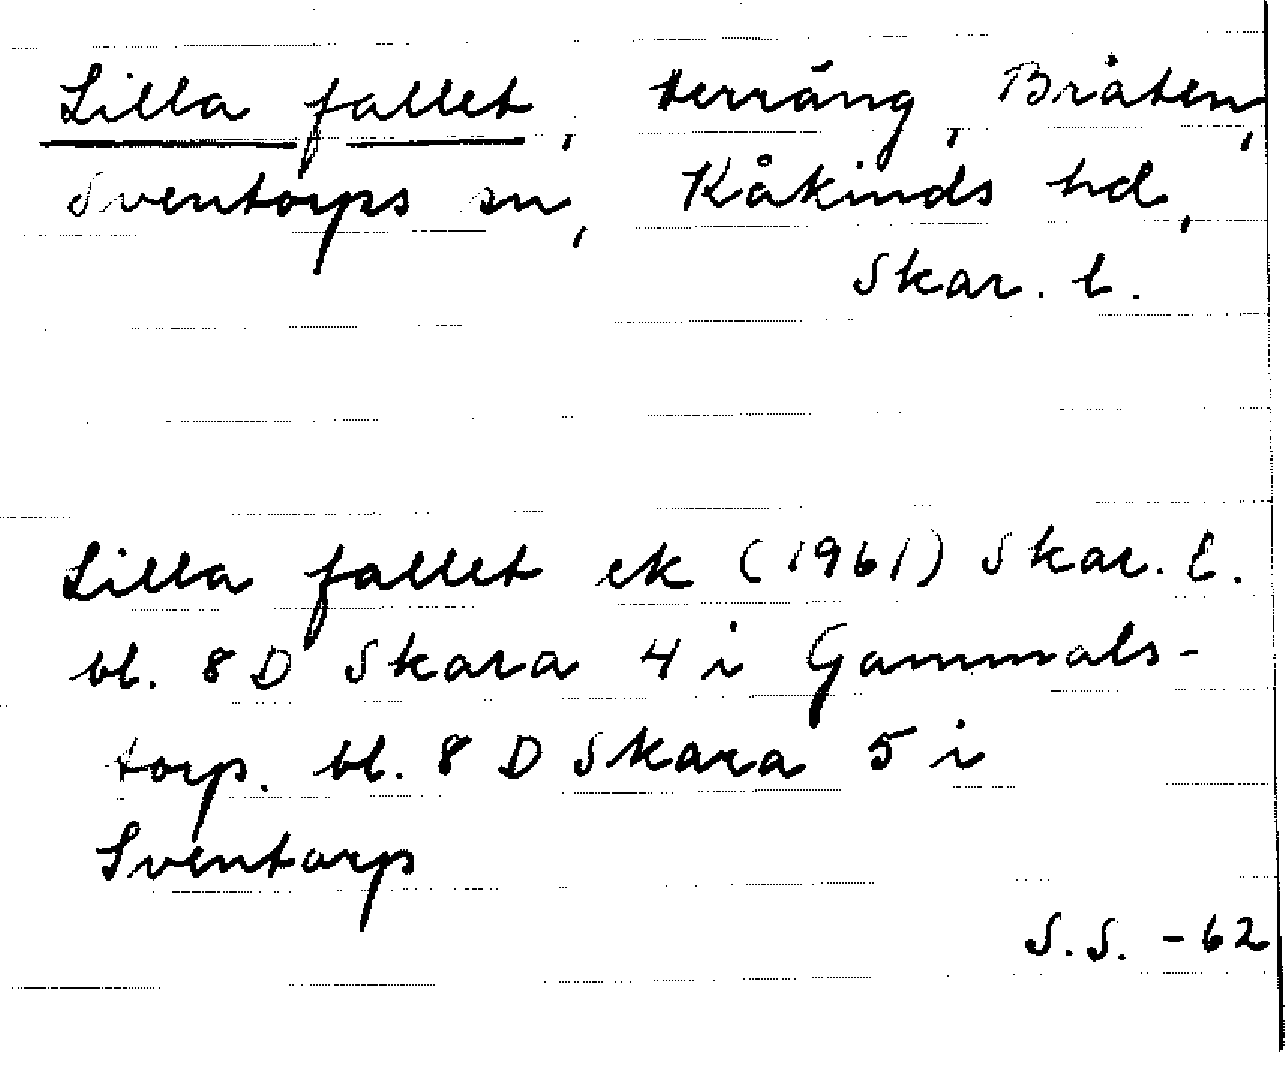 Lilla fallet, terräng, Bråten,
Sventorps sn, Kåkinds hd,
Skar. l.
Lilla fallet ek (1961) Skar. l.
bl. 8 D Skara 4 i Gammals-
torp. bl. 8 D Skara 5 i
Sventorp
S.S. -62